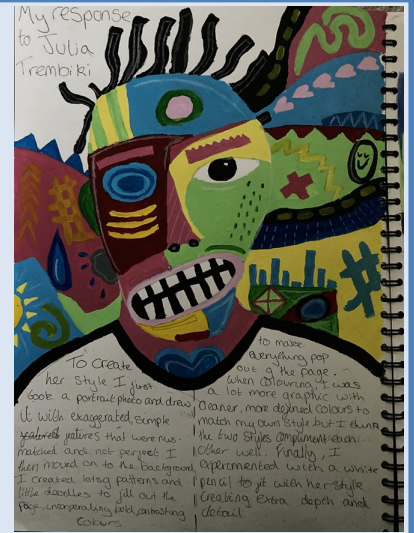 My response
to Julia
Trembiki
To create
her style I just
took a portrait photo and drew
it with exaggerated, simple
features that were mis-
matched and not perfect I
then moved on to the background,
I created lots of patterns and
little doodles to fill out the
page, incorporating bold, contrasting
colours
to make
everything pop
out of the page.
When colouring, I was
a lot more graphic with
cleaner, more defined colours to
match my own style but I think
the two styles compliment each
other well. Finally, I
experimented with a white
pencil to fit with her style
creating extra depth and
detail